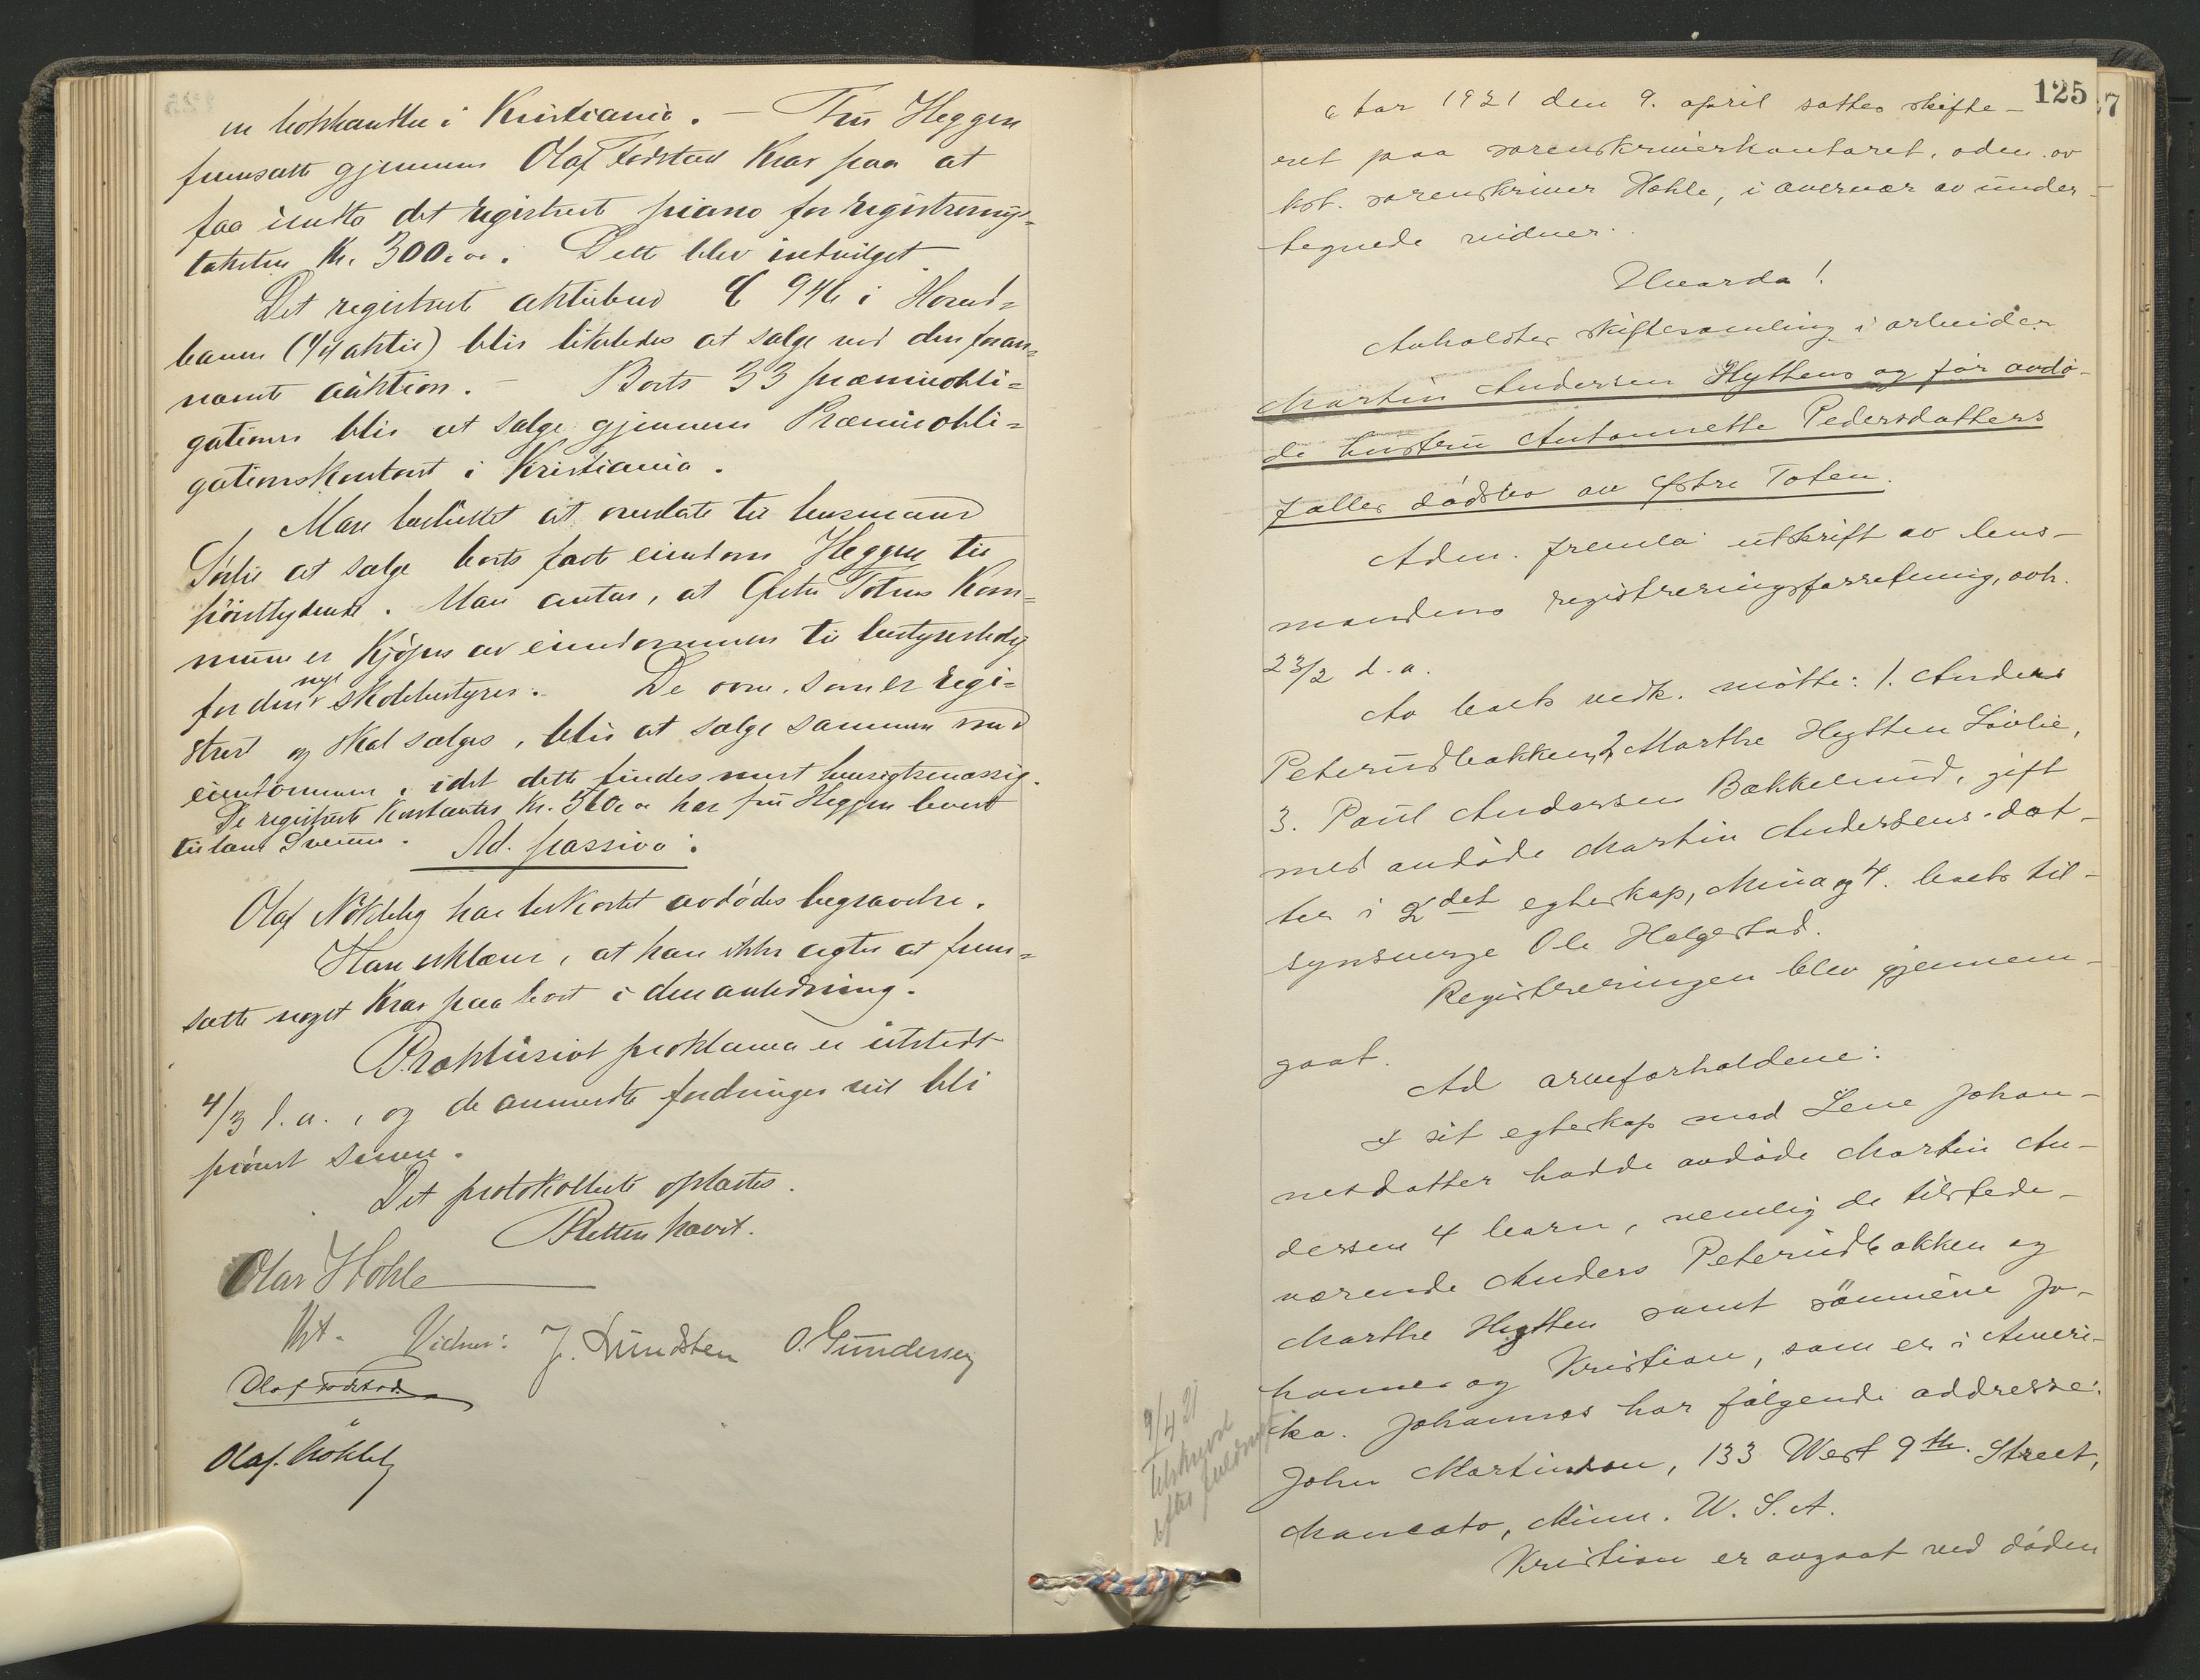 en bokhandler i Kristiania. — Fru Heggen
fremsatte gjennem Olaf Fodstad krav paa at
faa utta det registrert piano for registrerings-
taksten kr. 300.00. Dette blev indvilget.
Det registrert aktiebrev i Horud-
banen (1/4 aktie) blir likeledes at sælge ved den foran-
nævnte auktion. — Boets 33 præmieobli-
gationer blir at sælge gjennem Præmieobli-
gationskontoret i Kristiania.
Man besluttet at overlate til lensmand
at sælge boets faste eiendom Heggen til
høistbydende. Man antar, at Østre Totens Kom-
mune er kjøper av eiendommen til bestyrerbolig
for den nye skolebestyrer. De som er regi-
strert og skal sælges, blir at sælge sammen med
eiendommen, idet dette findes mest hensigtsmæssig.
De registrerte kontanter kr. 560.00 har fru Heggen levert
til lensm.
Ad. passiva:
Olaf Nøkleby har bekostet avdødes begravelse.
Han erklærer, at han ikke agter at frem-
sætte noget krav paa boet i den anledning.
Præklusivt proklama er utstedt
4/3 d.a., og de anmeldte fordringer vil bli
prøvet senere.
Det protokollerte oplæstes.
Retten hævet.
Olav Hohle
kst. Vidner: J. Lundsten O. Gundersen
Olaf Fodstad
Olaf Nökleby
125
7
Aar 1921 den 9. april sattes skifte-
ret paa sorenskriverkontoret, adm. av
kst. sorenskriver Hohle, i overvær av under-
tegnede vidner.
Hvorda!
Avholdtes skiftesamling i arbeider
Martin Andersen Hyttens og før avdø-
de hustru Antonnette Pedersdatters
fælles dødsbo av Østre Toten.
Adm. fremla utskrift av lens-
mandens registreringsforretning, avh.
23/2 d.a.
Av boets vedk. møtte: 1. Anders
Peterudbakken, 2 Marthe Hytten Lövlie,
3. Paul Andersen Bakkelund, gift
med avdøde Martin Andersens dat-
ter i 2det egteskap, Mina og 4. boets til-
synsverge Ole Helgestad.
Registreringen blev gjennem-
gaat.
Ad arveforholdene:
I sit egteskap med Lene Johan-
nesdatter hadde avdøde Martin An-
dersen 4 barn, nemlig de tilstede-
værende Anders Peterudbakken og
Marthe Hytten samt sønnerne Jo-
hannes og Kristian, som er i Ameri-
ka. Johannes har følgende addresse:
John Martinson, 133 West 9th. Street,
Mancato, Minn. U. S. A.
Kristian er avgaat ved døden
9/4 21
tilskrevet
efter